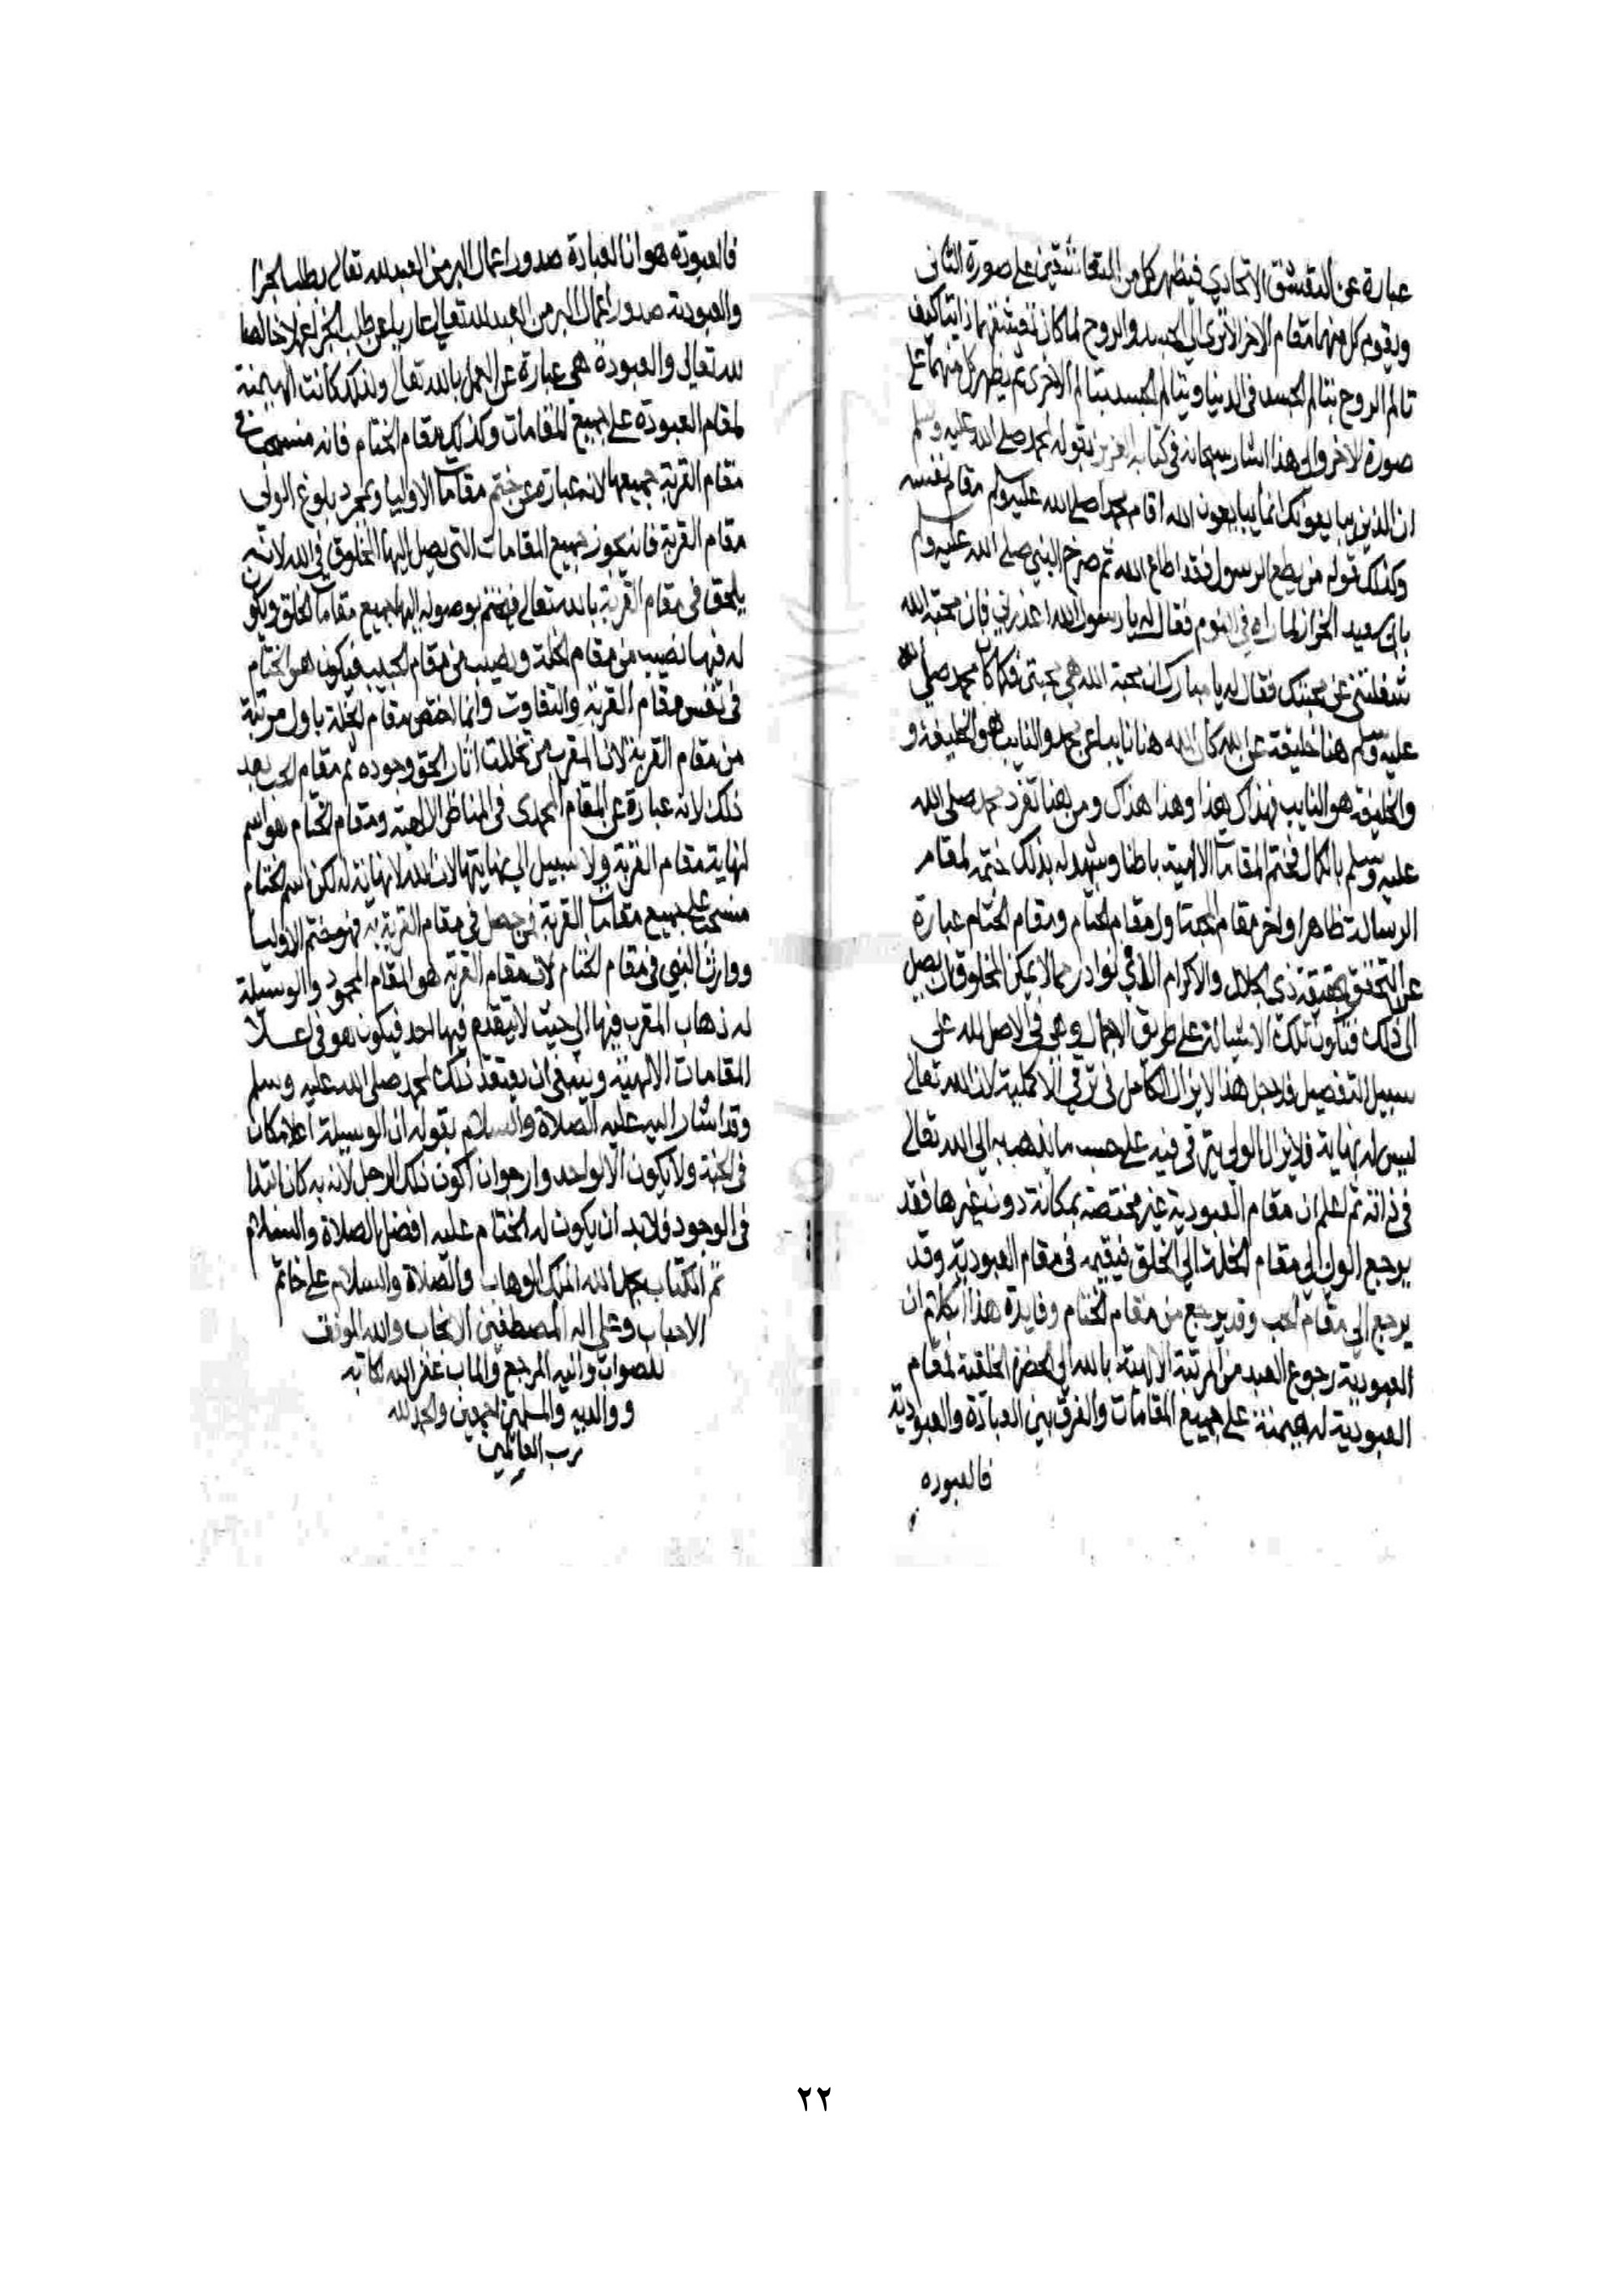 عبارة عن التعشق الاتحادي فيظهر كل من المتعاشقين على صورة الثاني
ويقوم كل منهما مقام الاخر الا ترى الى الجسد والروح لما كان تعشقهما ذاتيا كيف
تالم الروح بتالم الجسد في الدنيا ويتالم الجسد بتالم الاخرى ثم يظهر كل منهما على
صورة الاخر والى هذا اشار سبحانه في كتابه العزيز بقوله لمحمد صلى الله عليه وسلم
ان الذين يبايعونك انما يبايعون الله اقام محمدا صلى الله عليه وسلم مقام نفسه
وكذلك قوله من يطع الرسول فقد اطاع الله ثم صرح النبي صلى الله عليه وسلم
بابي سعيد الخراز لما راه في النوم فقال له يا رسول الله اعذرني فان محبة الله
شغلتني عن محبتك فقال له يا مبارك ان محبة الله هي محبتي فكما كان محمد صلى الله
عليه وسلم هنا خليفة عن الله كان الله هنا نايبا عن محمد والنايب هو الخليفة و
والخليفة هو النايب فهذاك هذا وهذا هذاك ومن هنا تفرد محمد صلى الله
عليه وسلم بالكمال فختم المقامات الالهية باطنا وشهد له بذلك ختمه لمقام
الرسالة ظاهرا واخر مقام المحبة اول مقام الختام ومقام الختام عبارة
عن التحقق بحقيقة ذي الجلال والاكرام الا في نوادر مما لا يمكن المخلوق ان يصل
الى ذلك فتكون تلك الاشيا له على طريق الاجمال وهي في الاصل لله على
سبيل التفصيل فلاجل هذا لا يزال الكامل في ترقي الاكملية لان الله تعالى
ليس له نهاية فلا يزال الولي يترقى فيه على حسب ما يذهب به الى الله تعالى
في ذاته ثم اعلم ان مقام العبودية غير مختصة بمكانة دون غيرها فقد
يرجع الولي الى مقام الخلة الى الخلق فيقيمه في مقام العبودية وقد
يرجع الى مقام الحب وقد يرجع من مقام الختام وفايدة هذا الكلام ان
العبودية رجوع العبد من المرتبة الالهية بالله الى الحضرة الخلقية لمقام
العبودية له هيمنة على جميع المقامات والفرق بين العبادة والعبودية
فالعبوده
فالعبوده هو ان العبادة صدور اعمال البر من العبد لله تعالى يطلب الجزا
والعبودية صدور اعمال البر من العبد لله تعالى عاريا عن طلب الجزا عملا خالصا
لله تعالى والعبودة هي عبارة عن العمل بالله تعالى ولذلك كانت الهيمنة
لمقام العبودة على جميع المقامات وكذلك مقام الختام فانه منسحب في
مقام القربة جميعها لانه عبارة عن ختم مقامات الاوليا وبمجرد بلوغ الولي
مقام القربة فانه يجوز جميع المقامات التي يصل اليها المخلوق في الله لانه
يلحق في مقام القربة بالله تعالى فيختم بوصوله اليها جميع مقامات الخلق ويكون
له فيها نصيب من مقام الخلة ونصيب من مقام الحب فيكون هو الختام
في نفس مقام القربة والتفاوت وانما اختص مقام الخلة باول مرتبة
من مقام القربة لان المقرب من تخللت اثار الحق وجوده ثم مقام الحب بعد
ذلك لانه عبارة عن المقام المحمدي في المناظر الالهية ومقام الختام هو اسم
لنهاية مقام القربة ولا سبيل الى نهايتها لان الله لا نهاية له لكن اسم الختام
منسحب على جميع مقامات القربة فمن حصل في مقام القربة فهو ختم الاوليا
ووارث النبي في مقام الختام لان مقام القربة هو المقام المحمود والوسيلة
له ذهاب المقرب فيها الى حيث لا يتقدم فيها احد فيكون هو في اعلا
المقامات الالهية وينبغي ان يعتقد ذلك لمحمد صلى الله عليه وسلم
وقد اشار اليه عليه الصلاة والسلام بقوله ان الوسيلة اعلا مكان
في الجنة ولا يكون الا لواحد وارجو ان اكون ذلك الرجل لانه به كان ابتدا
في الوجود فلا بد ان يكون له الختام عليه افضل الصلاة والسلام
تم الكتاب بحمد الله الملك الوهاب والصلاة والسلام على خاتم
الاحباب وعلى اله المصطفين الانجاب والله الموفق
للصواب واليه المرجع والماب غفر الله لكاتبه
ووالديه والمسلمين اجمعين والحمد لله
رب العالمين
٢٢